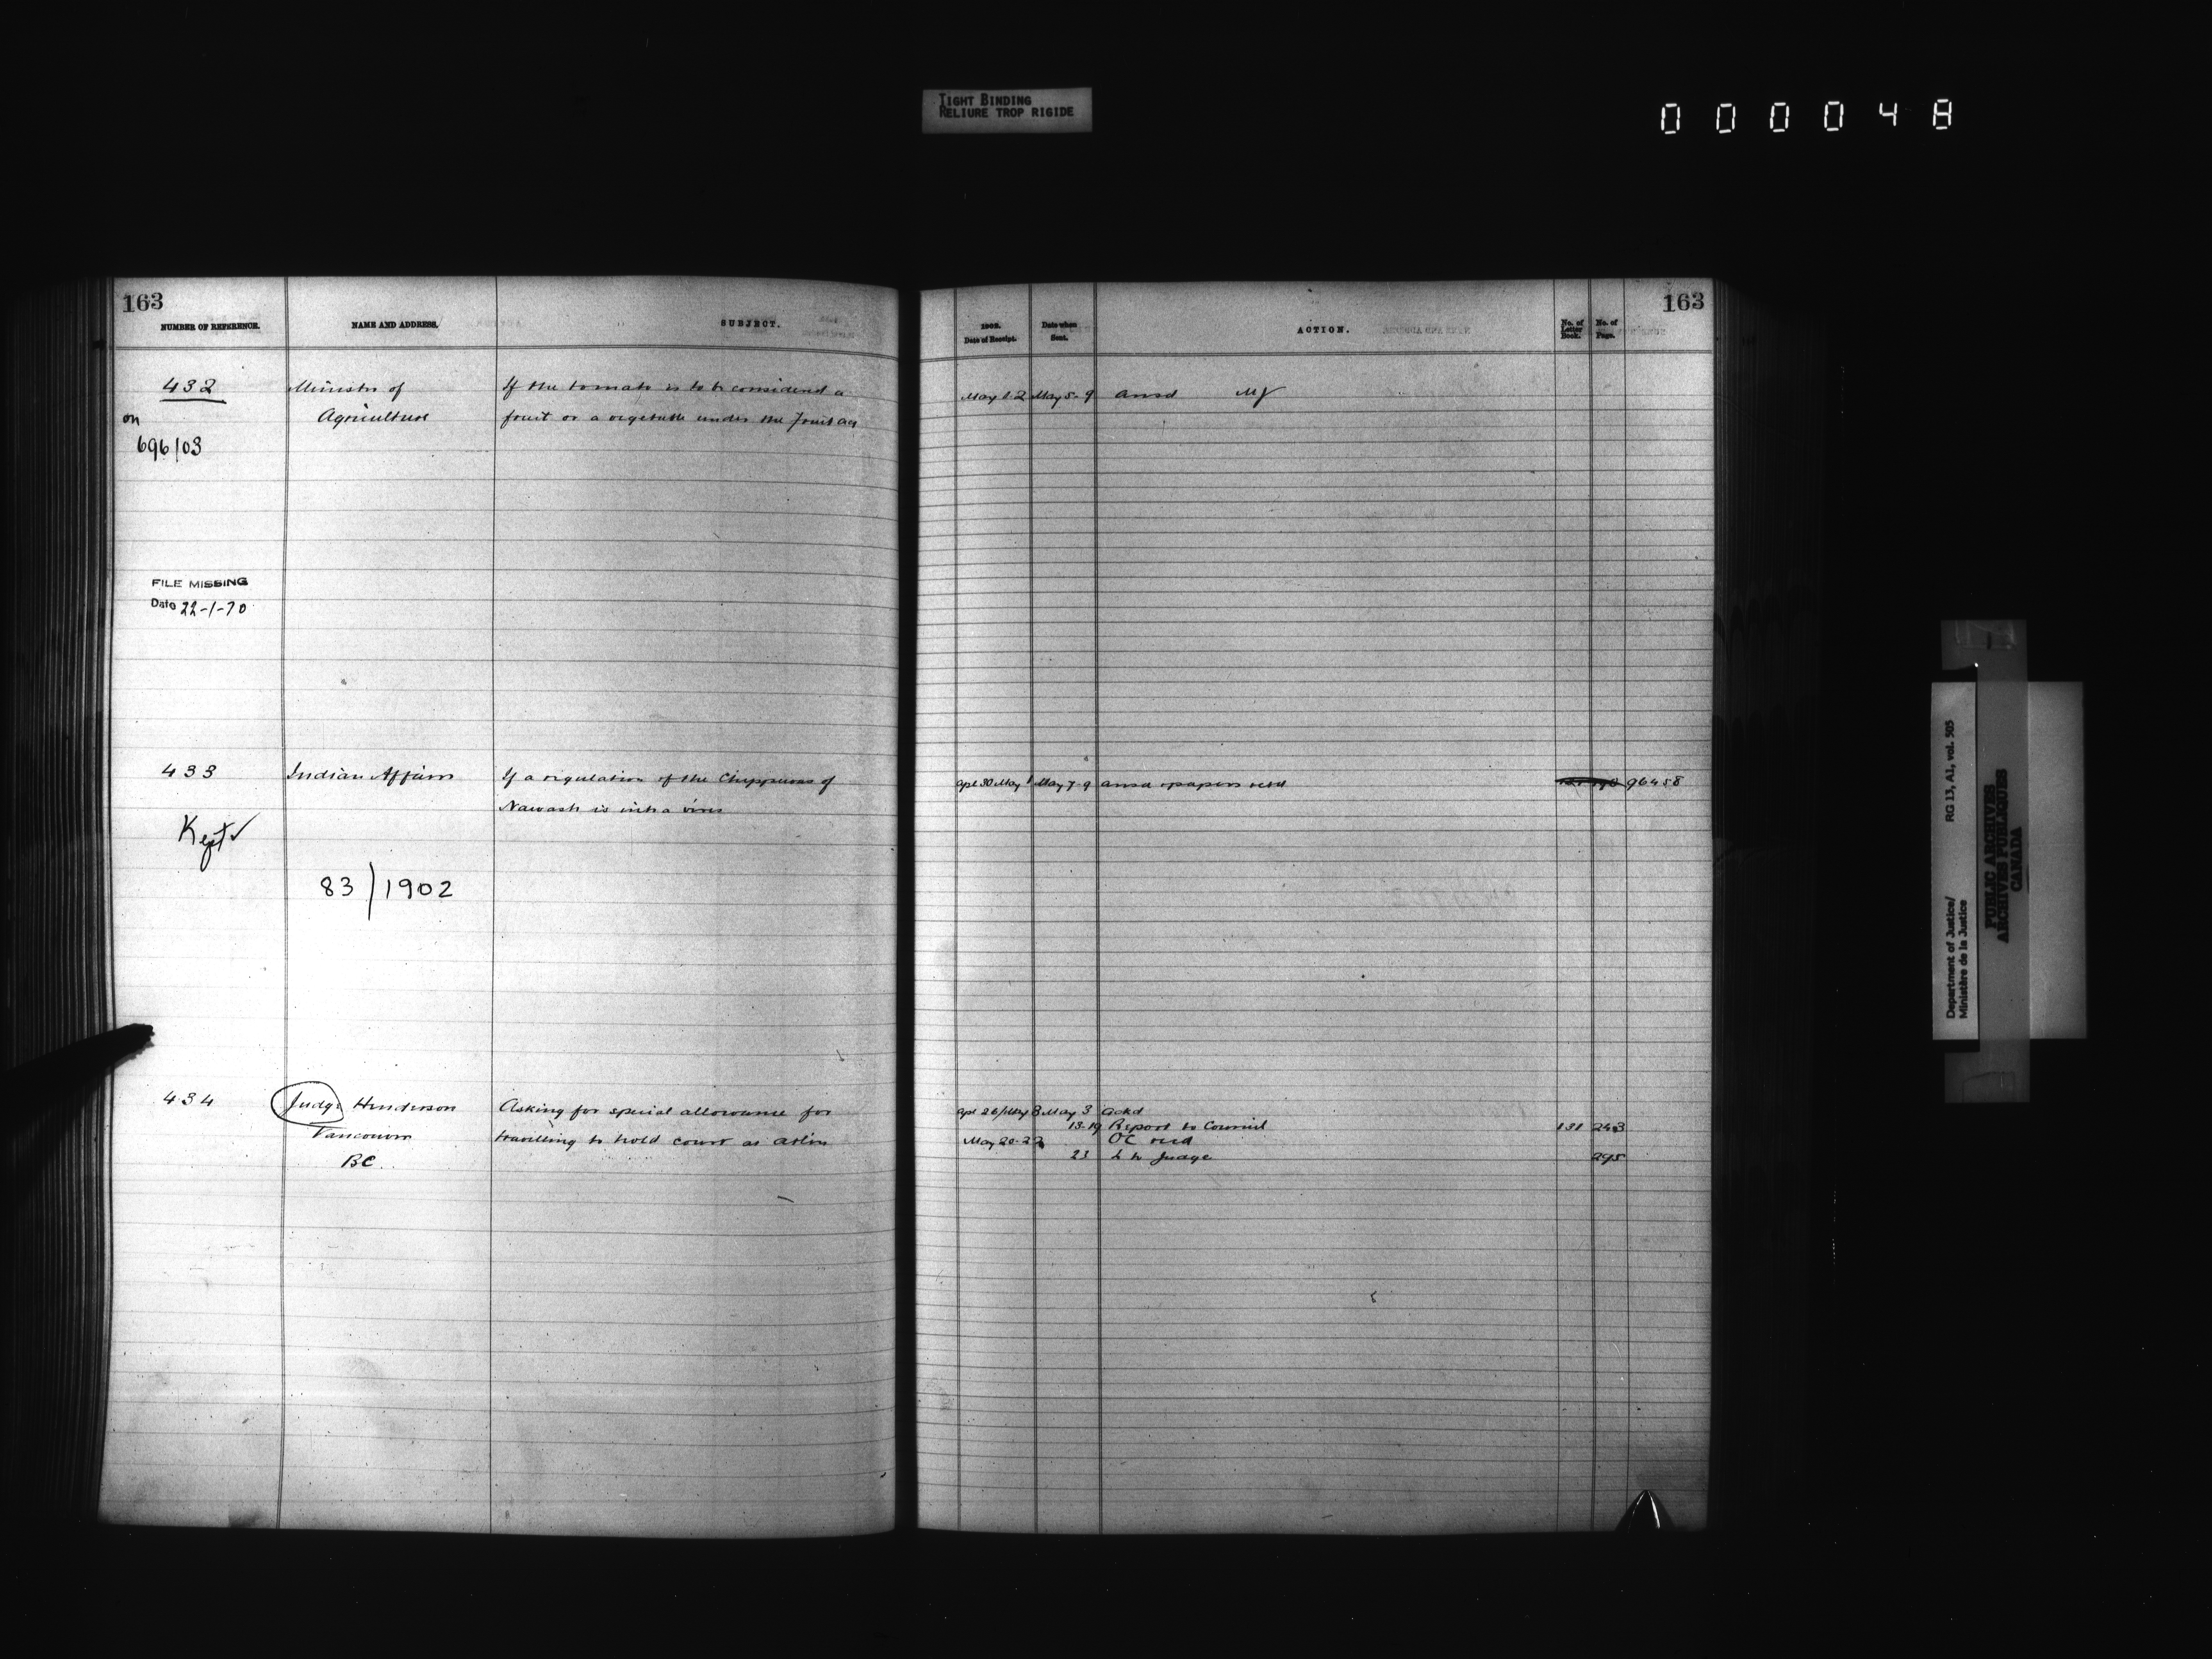 TIGHT BINDING
RELIURE TROP RIGIDE
000048
163
NUMBER OF REFERENCE.
NAME AND ADDRESS.
SUBJECT.
432
Minister of
If the tomato is to be considered a
on
Agriculture
fruit or a vegetable under the Fruit Act
696/03
FILE MISSING
Date 22-1-70
433
Indian Affairs
If a regulation of the Chippewas of
Nawash is intra vires
Kept ✓
83/1902
434
Judge Henderson
Asking for special allowance for
Vancouver
travelling to hold court at Atlin
BC.
163
1902.
Date of Receipt.
Date when
Sent.
ACTION.
No. of
Letter
Book.
No. of
Page.
May 1 2 May 5-9 ansd MJ
Apl 30 May 1 May 7-9 ansd & papers retd 96458
Apl 26/May 3 May 3 ackd
13-19 Report to Council 131 243
May 20-22 OC recd
23 L to Judge 295
Department of Justice/
Ministère de la Justice
RG 13, A1, vol. 505
PUBLIC ARCHIVES
ARCHIVES PUBLIQUES
CANADA